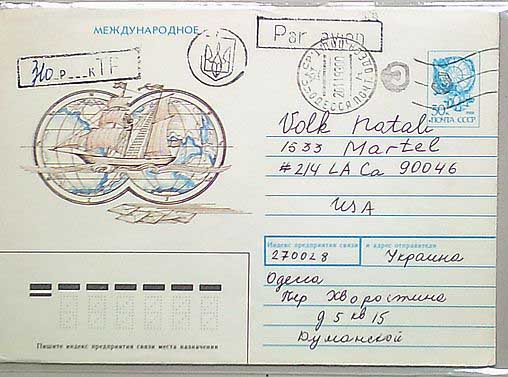 МЕЖДУНАРОДНОЕ
Par avion
ПОЧТА СССР
Volk Natali
1533 Martel
#214 LA Ca 90046
USA
Индекс предприятия связи и адрес отправителя
270028 Украина
Одесса
Пер Хворостина
д 5 кв 15
Думанской
Пишите индекс предприятия связи места назначения